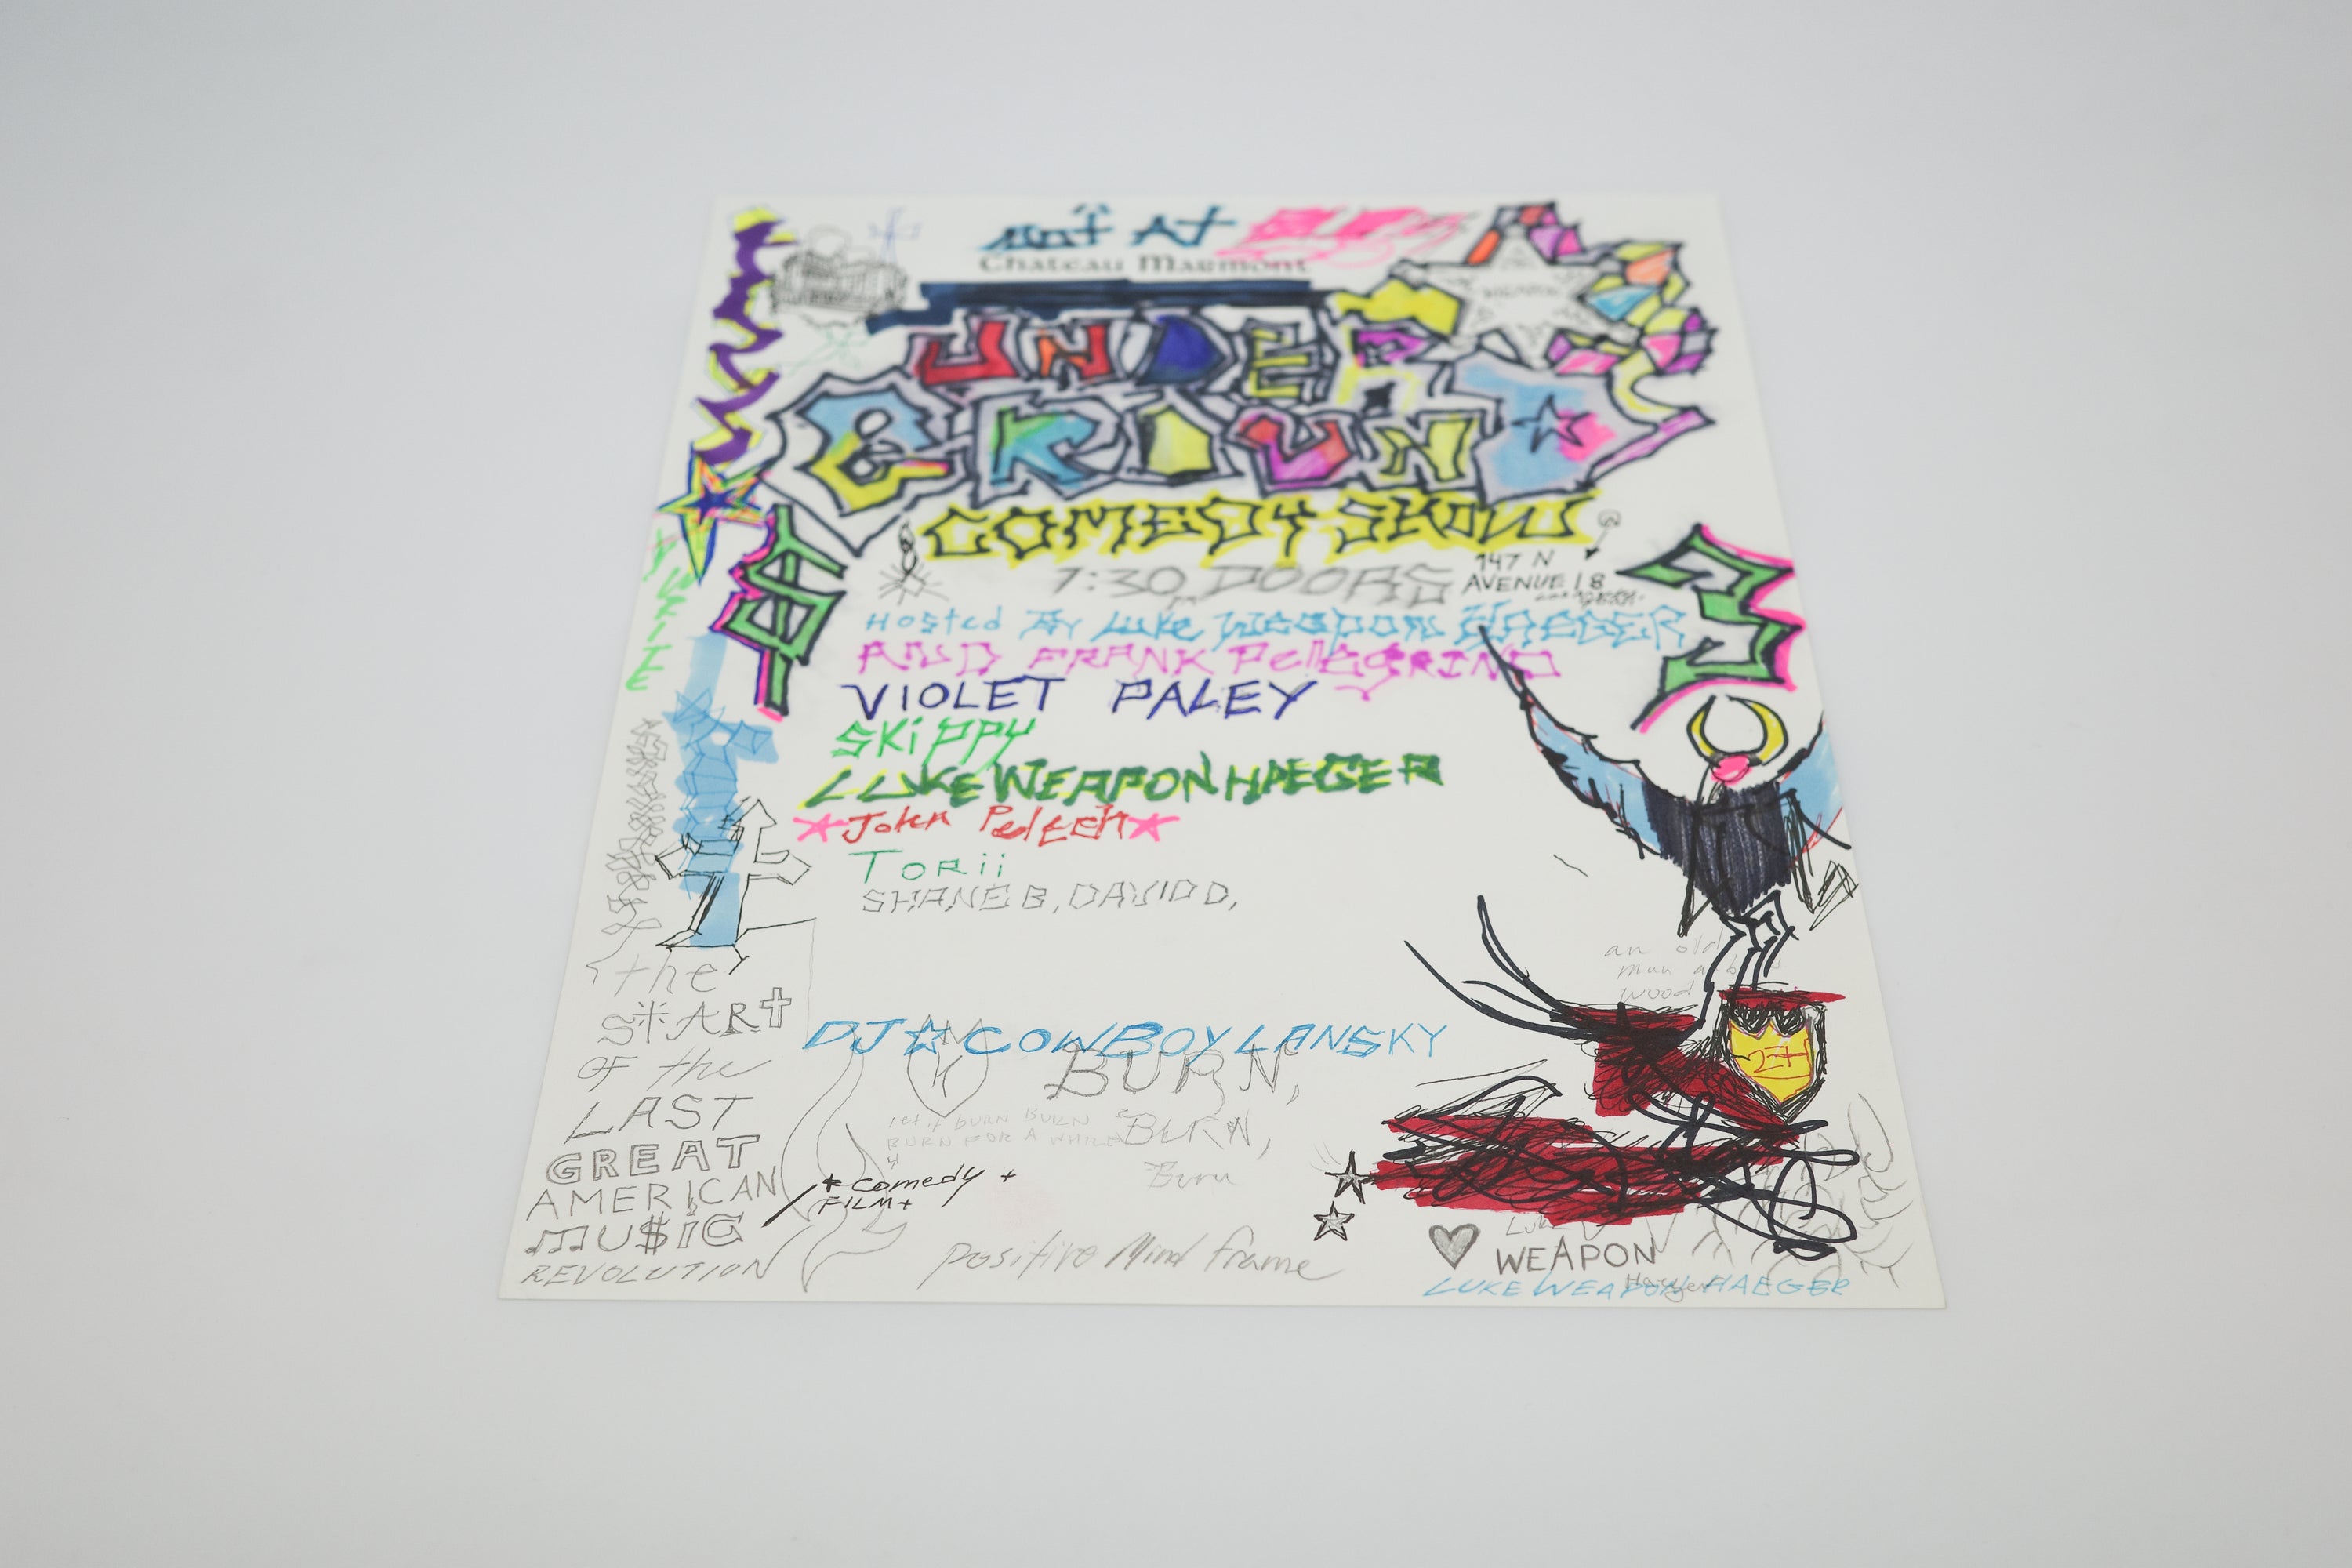 NOT AT
Chateau Marmont
WEAPON
UNDER
GROUND
COMEDY SHOW
7:30 DOORS
147 N
AVENUE 18
Hosted By Luke WEAPON HAEGER
AND FRANK PELLEGRINO
VIOLET PALEY
SKiPPY
LUKE WEAPON HAEGER
John
Torii
SHANE B, DAVID D,
$
3
an old
man
wood
the
StARt
OF the
LAST
GREAT
AMERICAN
MU$iC
REVOLUTION
DJ COWBOY LANSKY
BURN,
BURN BURN
BURN FOR A WHILE
BURN,
Burn
+ Comedy +
FILM +
Positive Mind Frame
27
Luke
WEAPON
Haeger
LUKE WEAPON HAEGER